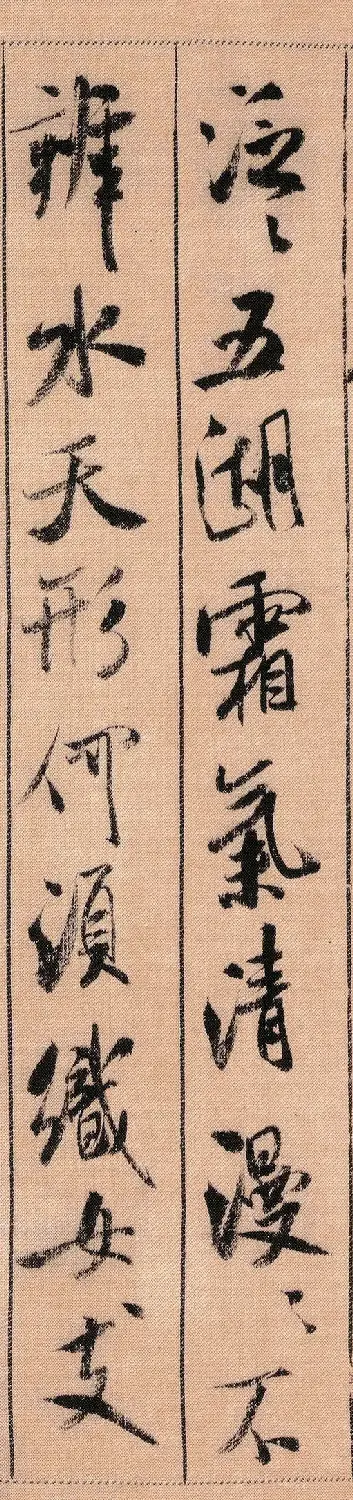 泛〻五湖霜氣清漫〻不
辨水天形何須織女支